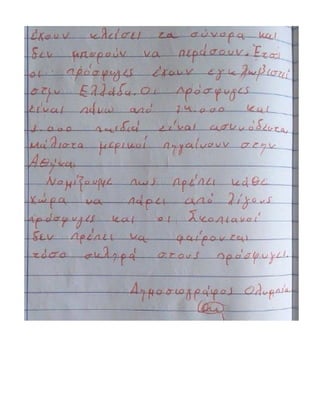 έχουν κλείσει τα σύνορα και
δεν μπορούν να περάσουν. Έτσι
οι πρόσφυγες έχουν εγκλωβιστεί
στην Ελλάδα. Οι πρόσφυγες
είναι πάνω από 14.000 και
5.000 παιδιά είναι ασυνόδευτα
μάλιστα μερικοί πηγαίνουν στην
Αθήνα.
Νομίζουμε πως πρέπει κάθε
χώρα να πάρει από λίγους
πρόσφυγες και οι Σκοπιανοί
δεν πρέπει να φαίρονται
τόσο σκληρά στους πρόσφυγες.
Δημοσιογράφος Ολυμπία